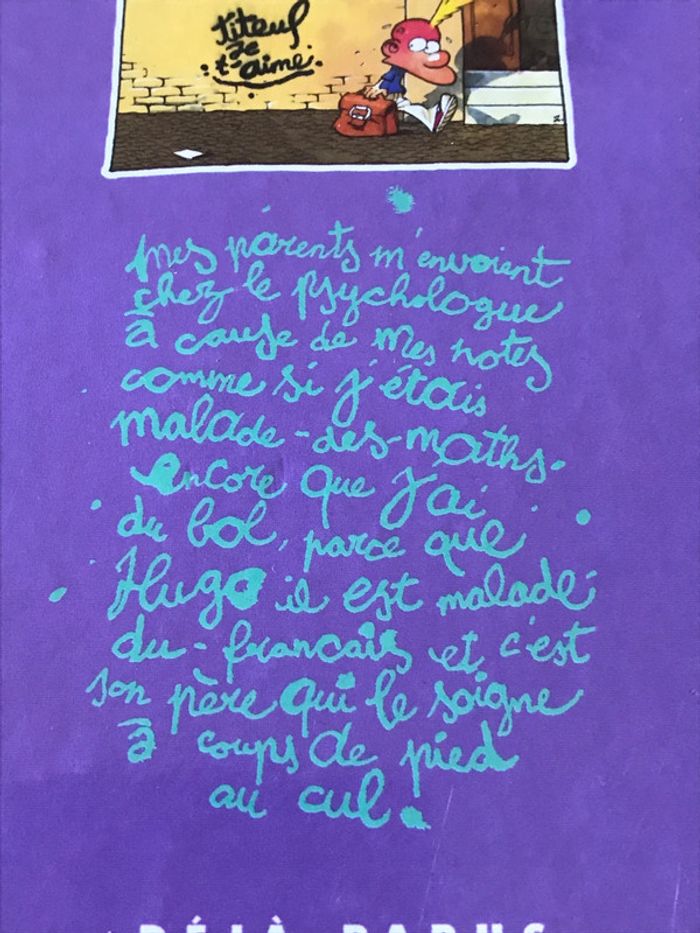 titeuf
je
t'aime.
mes parents m'envoient
chez le psychologue
à cause de mes notes
comme si j'étais
malade-des-maths.
encore que j'ai
du bol, parce que
Hugo il est malade-
du-francais et c'est
son père qui le soigne
à coups de pied
au cul.
DÉJÀ PARUS